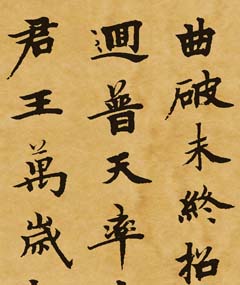 曲破未終招
迴普天率
君王萬歲